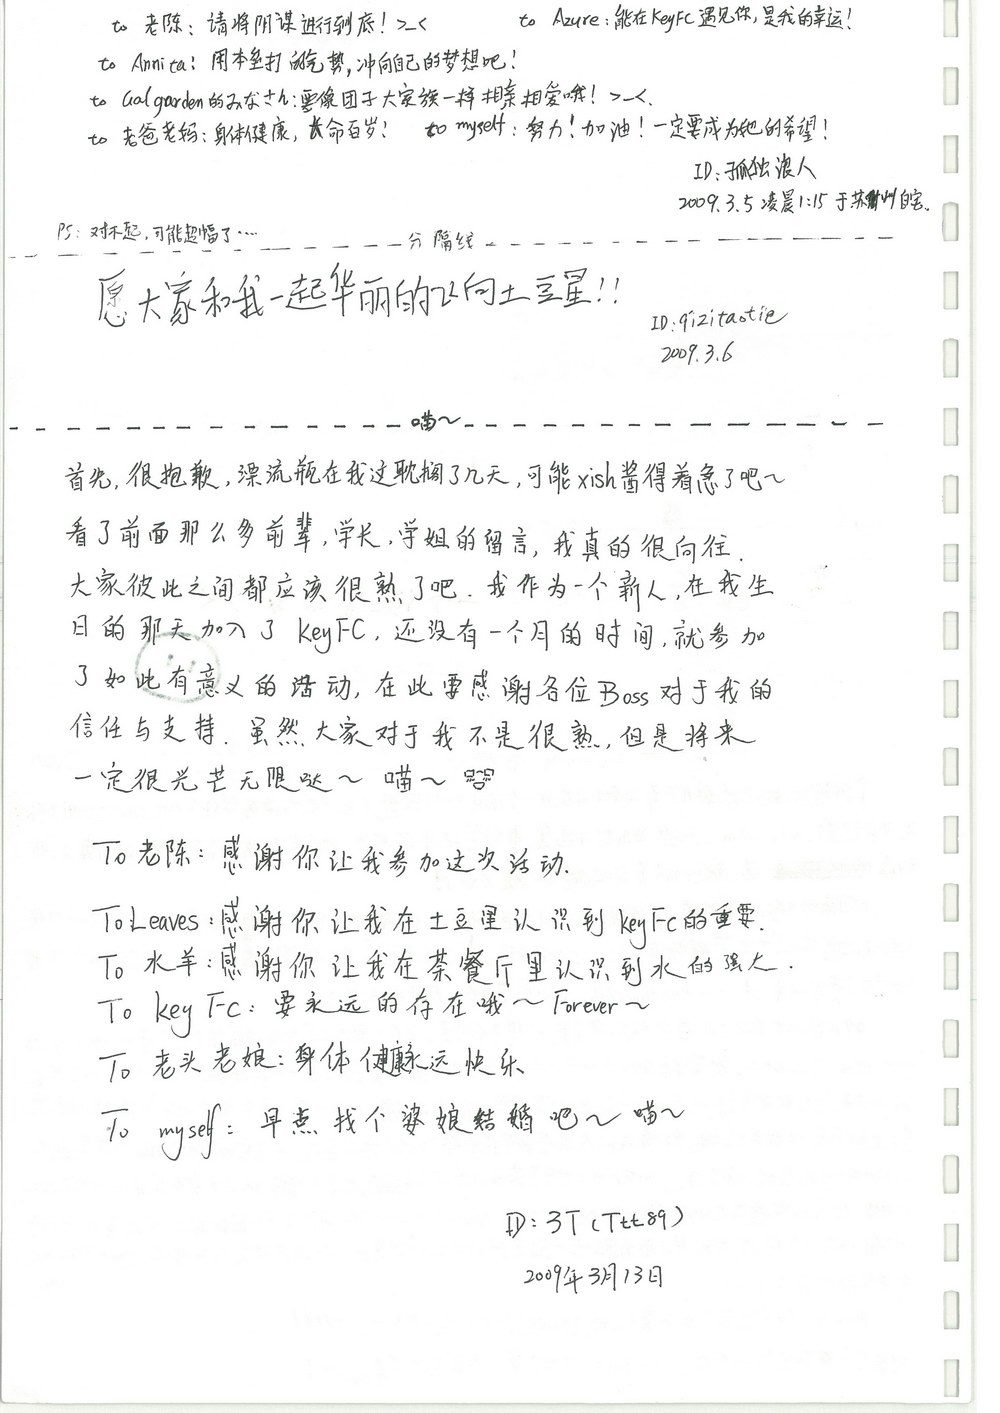 to 老陈：请将阴谋进行到底！>_< to Azure：能在KeyFC遇见你，是我的幸运！
to Annita：用本垒打的气势，冲向自己的梦想吧！
to Galgarden的みなさん：要像团子大家族一样相亲相爱哦！>_<.
to 老爸老妈：身体健康，长命百岁！ to myself：努力！加油！一定要成为她的希望！
ID：孤独浪人
2009.3.5 凌晨1:15 于苏州自宅.
PS：对不起，可能超幅了····
分隔线
愿大家和我一起华丽的飞向土豆星!!
ID：qizitaotie
2009.3.6
喵～
首先，很抱歉，漂流瓶在我这耽搁了几天，可能xish酱得着急了吧～
看了前面那么多前辈，学长，学姐的留言，我真的很向往.
大家彼此之间都应该很熟了吧. 我作为一个新人，在我生
日的那天加入了 KeyFC，还没有一个月的时间，就参加
了如此有意义的活动，在此要感谢各位Boss对于我的
信任与支持. 虽然大家对于我不是很熟，但是将来
一定很光芒无限哒～ 喵～
To 老陈：感谢你让我参加这次活动.
To Leaves：感谢你让我在土豆里认识到KeyFc的重要.
To 水羊：感谢你让我在茶餐厅里认识到水的强大.
To key Fc：要永远的存在哦～Forever～
To 老头老娘：身体健康永远快乐
To myself：早点找个婆娘结婚吧～喵～
ID：3T（Ttt89）
2009年3月13日